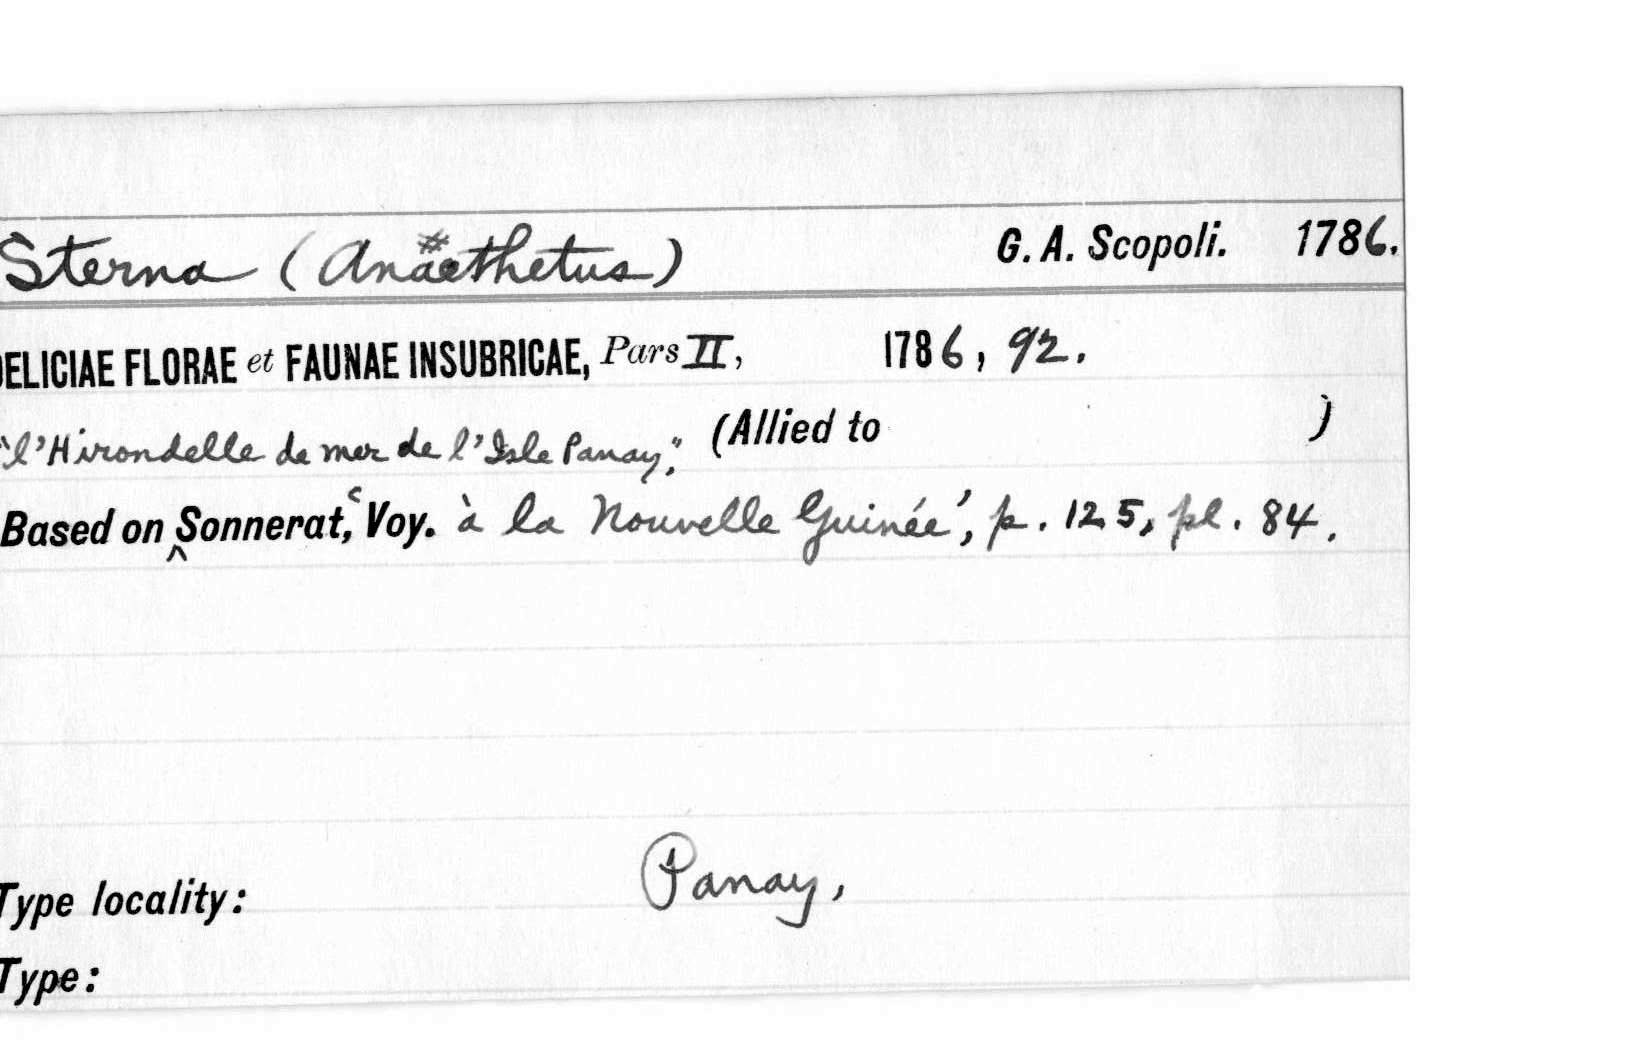 Sterna (Anäethetus) G. A. Scopoli. 1786.
DELICIAE FLORAE et FAUNAE INSUBRICAE, Pars II, 1786, 92.
"l'Hirondelle de mer de l'Isle Panay," (Allied to )
Based on ^ Sonnerat, 'Voy. à la Nouvelle Guinée', p. 125, pl. 84.
Panay,
Type locality:
Type: